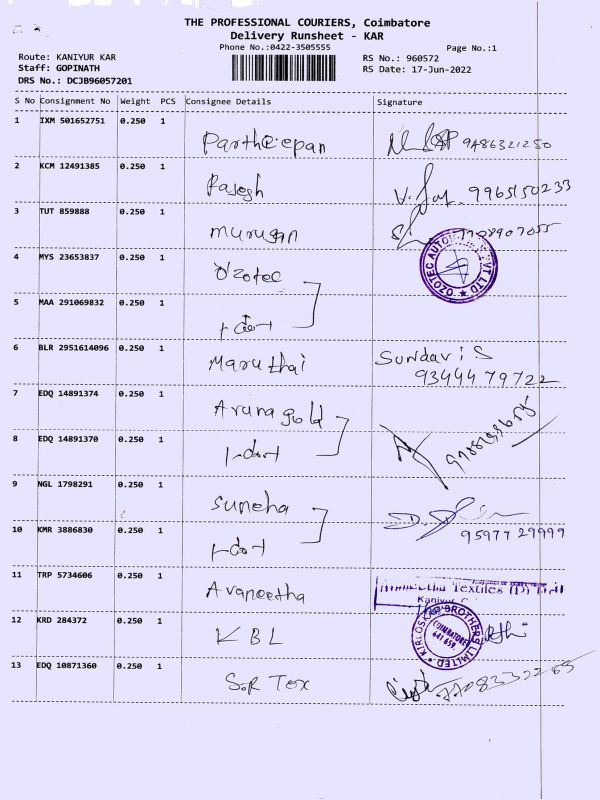 THE PROFESSIONAL COURIERS, Coimbatore
Delivery Runsheet - KAR
Phone No.:0422-3505555
Page No.:1
Route: KANIYUR KAR
RS No.: 960572
Staff: GOPINATH
RS Date: 17-Jun-2022
DRS No.: DCJB96057201
S No Consignment No Weight PCS Consignee Details Signature
1 IXM 501652751 0.250 1
Partheepan 9486321250
2 KCM 12491385 0.250 1
Rajesh 9965150233
3 TUT 859888 0.250 1
murugan
4 MYS 23653837 0.250 1
Ozotec
OZOTEC AUTO VT LTD
5 MAA 291069832 0.250 1
6 BLR 2951614096 0.250 1
Maruthai Sundar i S
9344479722
7 EDQ 14891374 0.250 1
Aruna gold
8 EDQ 14891370 0.250 1
9 NGL 1798291 0.250 1
Suneha
9597729999
10 KMR 3886830 0.250 1
11 TRP 5734606 0.250 1
Avaneetha
Textiles (P)
12 KRD 284372 0.250 1
KBL
KIRLOSKAR BROTHERS LIMITED
COIMBATORE
641 659.
13 EDQ 10871360 0.250 1
S.R Tex